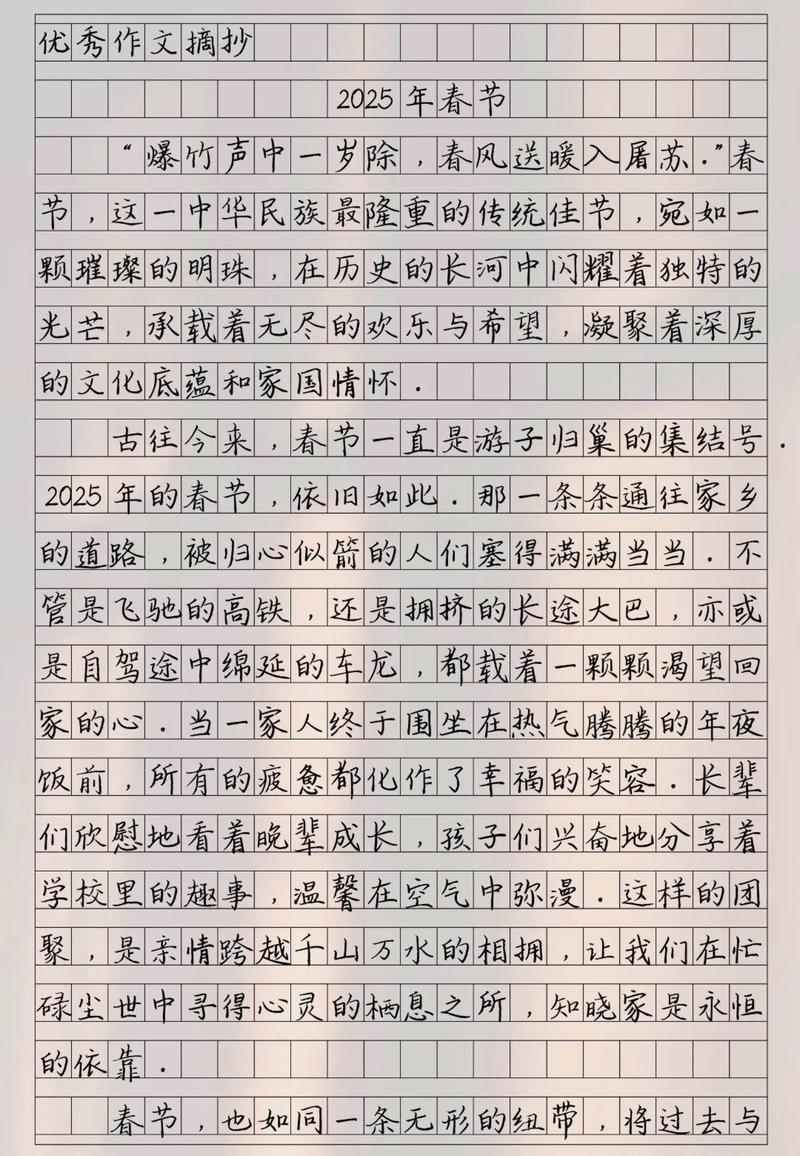 优秀作文摘抄
2025年春节
“爆竹声中一岁除，春风送暖入屠苏.”春
节，这一中华民族最隆重的传统佳节，宛如一
颗璀璨的明珠，在历史的长河中闪耀着独特的
光芒，承载着无尽的欢乐与希望，凝聚着深厚
的文化底蕴和家国情怀.
古往今来，春节一直是游子归巢的集结号.
2025年的春节，依旧如此.那一条条通往家乡
的道路，被归心似箭的人们塞得满满当当.不
管是飞驰的高铁，还是拥挤的长途大巴，亦或
是自驾途中绵延的车龙，都载着一颗颗渴望回
家的心.当一家人终于围坐在热气腾腾的年夜
饭前，所有的疲惫都化作了幸福的笑容.长辈
们欣慰地看着晚辈成长，孩子们兴奋地分享着
学校里的趣事，温馨在空气中弥漫.这样的团
聚，是亲情跨越千山万水的相拥，让我们在忙
碌尘世中寻得心灵的栖息之所，知晓家是永恒
的依靠.
春节，也如同一条无形的纽带，将过去与